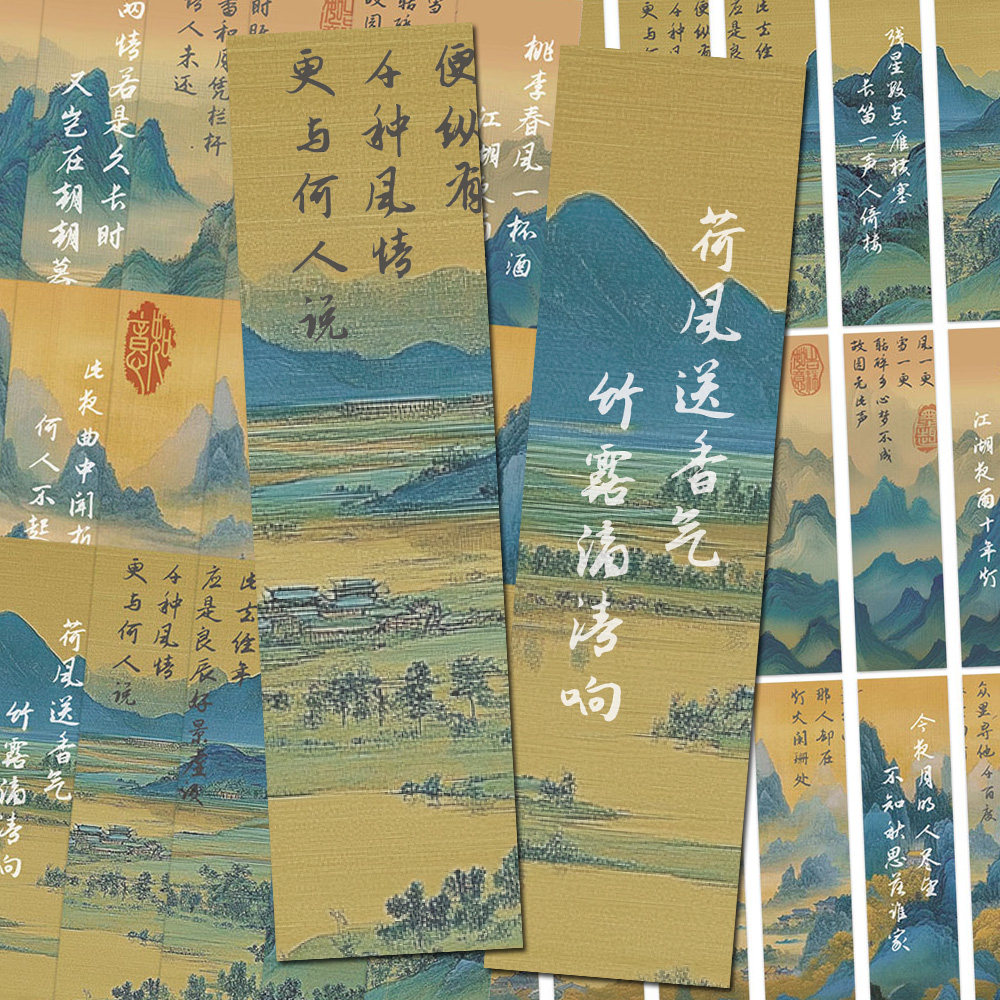 便纵有
千种风情
更与何人说
荷风送香气
竹露滴清响
两情若是久长时
又岂在朝朝暮
和月凭栏杆
人未还
桃李春风一杯酒
江湖
便纵有
千种风
更与
应是良
残星数点雁横塞
长笛一声人倚楼
此夜曲中闻折
何人不起
风一更
雪一更
聒碎乡心梦不成
故园无此声
江湖夜雨十年灯
此去经年
应是良辰好景虚设
千种风情
更与何人说
荷风送香气
竹露滴清响
众里寻他千百度
那人却在
灯火阑珊处
今夜月明人尽望
不知秋思落谁家